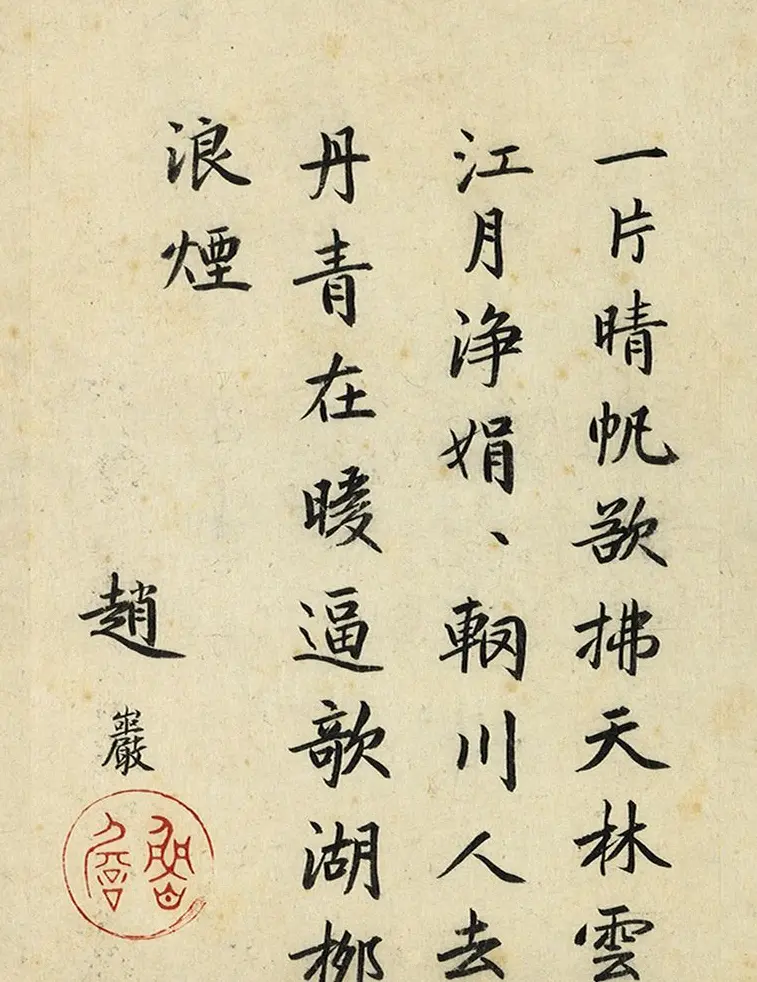 一片晴帆欲拂天林雲
江月净娟、輞川人去
丹青在暖逼欹湖柳
浪煙
趙巖